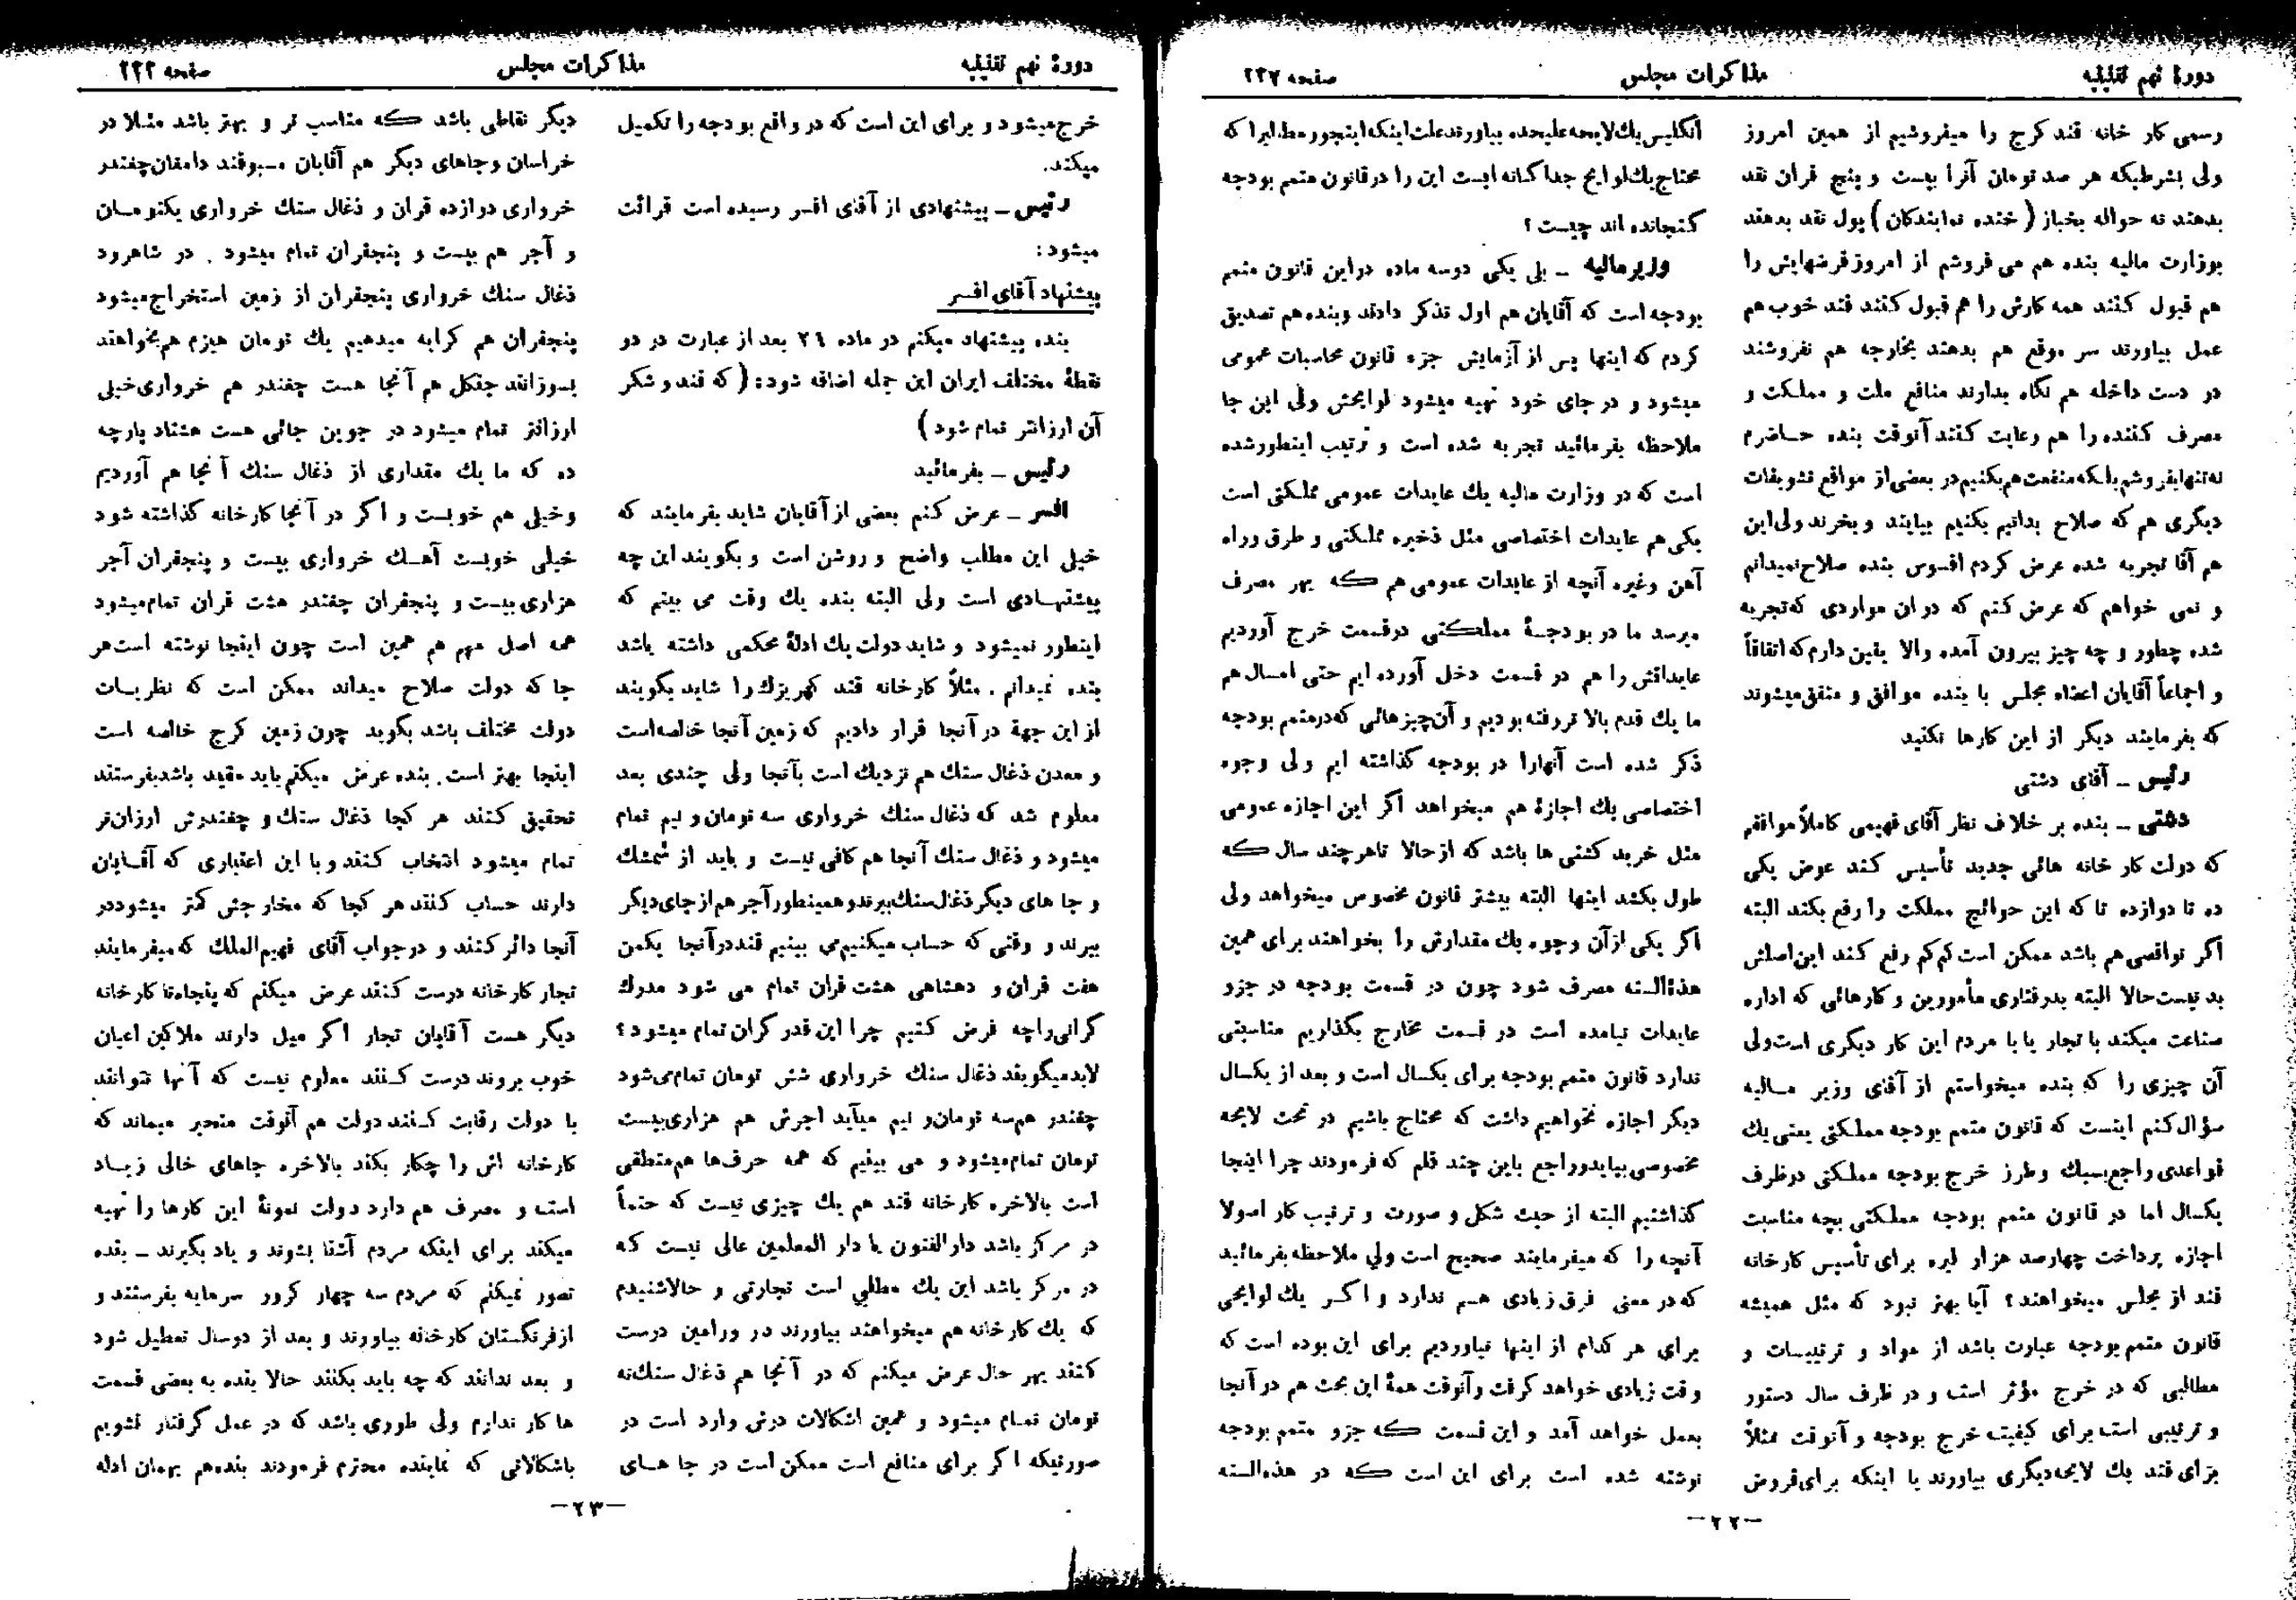 دورهٔ نهم تقنینیه
مذاکرات مجلس
صفحه ۲۲۷
رسمی کار خانه قند کرج را میفروشیم از همین امروز
ولی بشرطیکه هر صد تومان آنرا بیست و پنج قران نقد
بدهند نه حواله بخباز ( خنده نمایندکان ) پول نقد بدهند
بوزارت مالیه بنده هم می فروشم از امروز قرضهایش را
هم قبول کنند همه کارش را هم قبول کنند قند خوب هم
عمل بیاورند سر موقع هم بدهند بخارجه هم نفروشند
در دست داخله هم نگاه بدارند منافع ملت و مملکت و
مصرف کننده را هم رعایت کنند آنوقت بنده حاضرم
نه تنها بفروشم بلکه منفعت هم بکنیم در بعضی از مواقع تشویقات
دیگری هم که صلاح بدانیم بکنیم بیایند و بخرند ولی این
هم آقا تجربه شده عرض کردم افسوس بنده صلاح نمیدانم
و نمی خواهم که عرض کنم که در ان مواردی که تجربه
شده چطور و چه چیز بیرون آمده والا یقین دارم که اتفاقاً
و اجماعاً آقایان اعضاء مجلس با بنده موافق و متفق میشوند
که بفرمایند دیگر از این کارها نکنید
رئیس ـ آقای دشتی
دشتی ـ بنده بر خلاف نظر آقای فهیمی کاملاً موافقم
که دولت کار خانه هائی جدید تأسیس کند عوض یکی
ده تا دوازده تا که این حوائج مملکت را رفع بکند البته
اگر نواقصی هم باشد ممکن است کم کم رفع کند این اصلش
بد نیست حالا البته بدرفتاری مأمورین و کارهائی که اداره
صناعت میکند با تجار یا با مردم این کار دیگری است ولی
آن چیزی را که بنده میخواستم از آقای وزیر مالیه
سؤال کنم اینست که قانون متمم بودجه مملکتی یعنی یك
قواعدی راجع بسبك وطرز خرج بودجه مملکتی در ظرف
یکسال اما در قانون متمم بودجه مملکتی بچه مناسبت
اجازه پرداخت چهارصد هزار لیره برای تأسیس کارخانه
قند از مجلس میخواهند؟ آیا بهتر نبود که مثل همیشه
قانون متمم بودجه عبارت باشد از مواد و ترتیبات و
مطالبی که در خرج مؤثر است و در ظرف سال دستور
و ترتیبی است برای کیفیت خرج بودجه و آنوقت مثلاً
برای قند یك لایحه دیگری بیاورند یا اینکه برای قروض
انگلیس یك لایحه علیحده بیاورند علت اینکه اینجور مطالبرا که
محتاج یك لوایح جداگانه ایست این را در قانون متمم بودجه
گنجانده اند چیست ؟
وزیر مالیه ـ بلی یکی دوسه ماده در این قانون متمم
بودجه است که آقایان هم اول تذکر دادند و بنده هم تصدیق
کردم که اینها پس از آزمایش جزء قانون محاسبات عمومی
میشود و در جای خود تهیه میشود لوایحش ولی این جا
ملاحظه بفرمائید تجربه شده است و ترتیب اینطور شده
است که در وزارت مالیه یك عایدات عمومی مملکتی است
یکی هم عایدات اختصاصی مثل ذخیره مملکتی و طرق وراه
آهن وغیره آنچه از عایدات عمومی هم که بهر مصرف
میرسد ما در بودجهٔ مملکتی درقسمت خرج آوردیم
عایداتش را هم در قسمت دخل آورده ایم حتی امسال هم
ما یك قدم بالا تر رفته بودیم و آن چیز هائی که درمتمم بودجه
ذکر شده است آنهارا در بودجه گذاشته ایم ولی وجوه
اختصاصی یك اجازهٔ هم میخواهد اگر این اجازه عمومی
مثل خرید کشتی ها باشد که از حالا تا هر چند سال که
طول بکشد اینها البته بیشتر قانون مخصوص میخواهد ولی
اگر یکی از آن وجوه یك مقدارش را بخواهند برای همین
هذه‌السنه مصرف شود چون در قسمت بودجه در جزو
عایدات نیامده است در قسمت مخارج بگذاریم مناسبتی
ندارد قانون متمم بودجه برای یکسال است و بعد از یکسال
دیگر اجازه نخواهیم داشت که محتاج باشیم در تحت لایحه
مخصوصی بیاید وراجع باین چند قلم که فرمودند چرا اینجا
گذاشتیم البته از حیث شکل و صورت و ترتیب کار اصولا
آنچه را که میفرمایند صحیح است ولی ملاحظه بفرمائید
که در معنی فرق زیادی هم ندارد و اگر یك لوایحی
برای هر کدام از اینها نیاوردیم برای این بوده است که
وقت زیادی خواهد گرفت و آنوقت همهٔ این بحث هم در آنجا
بعمل خواهد آمد و این قسمت که جزو متمم بودجه
نوشته شده است برای این است که در هذه السنه
ـ۲۲ـ
دورهٔ نهم تقنینیه
مذاکرات مجلس
صفحه ۲۲۲
خرج میشود و برای این است که در واقع بودجه را تکمیل
میکند.
رئیس ـ پیشنهادی از آقای افسر رسیده است قرائت
میشود:
پیشنهاد آقای افسر
بنده پیشنهاد میکنم در ماده ۲٤ بعد از عبارت در دو
نقطهٔ مختلف ایران این جمله اضافه شود: ( که قند و شکر
آن ارزانتر تمام شود )
رئیس ـ بفرمائید
افسر ـ عرض کنم بعضی از آقایان شاید بفرمایند که
خیلی این مطلب واضح و روشن است و بگویند این چه
پیشنهادی است ولی البته بنده یك وقت می بینم که
اینطور نمیشود و شاید دولت یك ادلهٔ محکمی داشته باشد
بنده نمیدانم . مثلاً کارخانه قند کهریزك را شاید بگویند
از این جهة در آنجا قرار دادیم که زمین آنجا خالصه است
و معدن ذغال سنك هم نزدیك است بآنجا ولی چندی بعد
معلوم شد که ذغال سنك خرواری سه تومان و نیم تمام
میشود و ذغال سنك آنجا هم کافی نیست و باید از شمشك
و جا های دیگر ذغال سنك ببرند و همینطور آجر هم از جای دیگر
ببرند و وقتی که حساب میکنیم می بینیم قند در آنجا یکمن
هفت قران و دهشاهی هشت قران تمام می شود مدرك
گرانی راچه فرض کنیم چرا این قدر گران تمام میشود؟
لابد میگویند ذغال سنك خرواری شش تومان تمام می شود
چغندر هم سه تومان و نیم میآید اجرش هم هزاری بیست
تومان تمام میشود و می بینیم که همه حرف‌ها هم منطقی
است بالاخره کارخانه قند هم یك چیزی نیست که حتماً
در مرکز باشد دارالفنون یا دار المعلمین عالی نیست که
در مرکز باشد این یك مطلبی است تجارتی و حالا شنیدم
که یك کارخانه هم میخواهند بیاورند در ورامین درست
کنند بهر حال عرض میکنم که در آنجا هم ذغال سنك نه
تومان تمام میشود و همین اشکالات درش وارد است در
صورتیکه اگر برای منافع است ممکن است در جا های
دیگر نقاطی باشد که مناسب تر و بهتر باشد مثلا در
خراسان وجاهای دیگر هم آقایان مسبوقند دامغان چغندر
خرواری دوازده قران و ذغال سنك خرواری یکتومان
و آجر هم بیست و پنجقران تمام میشود . در شاهرود
ذغال سنك خرواری پنجقران از زمین استخراج میشود
پنجقران هم کرایه میدهیم یك تومان هیزم هم بخواهند
بسوزانند جنگل هم آنجا هست چغندر هم خرواری خیلی
ارزانتر تمام میشود در جوین جائی هست هشتاد پارچه
ده که ما یك مقداری از ذغال سنك آنجا هم آوردیم
وخیلی هم خوبست و اگر در آنجا کارخانه گذاشته شود
خیلی خوبست آهك خرواری بیست و پنجقران آجر
هزاری بیست و پنجقران چغندر هشت قران تمام میشود
همه اصل مهم هم همین است چون اینجا نوشته است هر
جا که دولت صلاح میداند ممکن است که نظریات
دولت مختلف باشد بگوید چون زمین کرج خالصه است
اینجا بهتر است. بنده عرض میکنم باید مقید باشد بفرستند
تحقیق کنند هر کجا ذغال سنك و چغندرش ارزان‌تر
تمام میشود انتخاب کنند و با این اعتباری که آقایان
دارند حساب کنند هر کجا که مخارجش کمتر میشود در
آنجا دائر کنند و در جواب آقای فهیم الملك که میفرمایند
تجار کارخانه درست کنند عرض میکنم که پنجاه تا کارخانه
دیگر هست آقایان تجار اگر میل دارند ملاکین اعیان
خوب بروند درست کنند معلوم نیست که آنها نتوانند
با دولت رقابت کنند دولت هم آنوقت متحیر میماند که
کارخانه اش را چکار بکند بالاخره جاهای خالی زیاد
است و مصرف هم دارد دولت نمونهٔ این کارها را تهیه
میکند برای اینکه مردم آشنا بشوند و یاد بگیرند ـ بنده
تصور نمیکنم که مردم سه چهار کرور سرمایه بفرستند و
از فرنگستان کارخانه بیاورند و بعد از دوسال تعطیل شود
و بعد ندانند که چه باید بکنند حالا بنده به بعضی قسمت
ها کار ندارم ولی طوری باشد که در عمل گرفتار نشویم
باشکالاتی که نماینده محترم فرمودند بنده هم بهمان ادله
ـ۲۳ـ